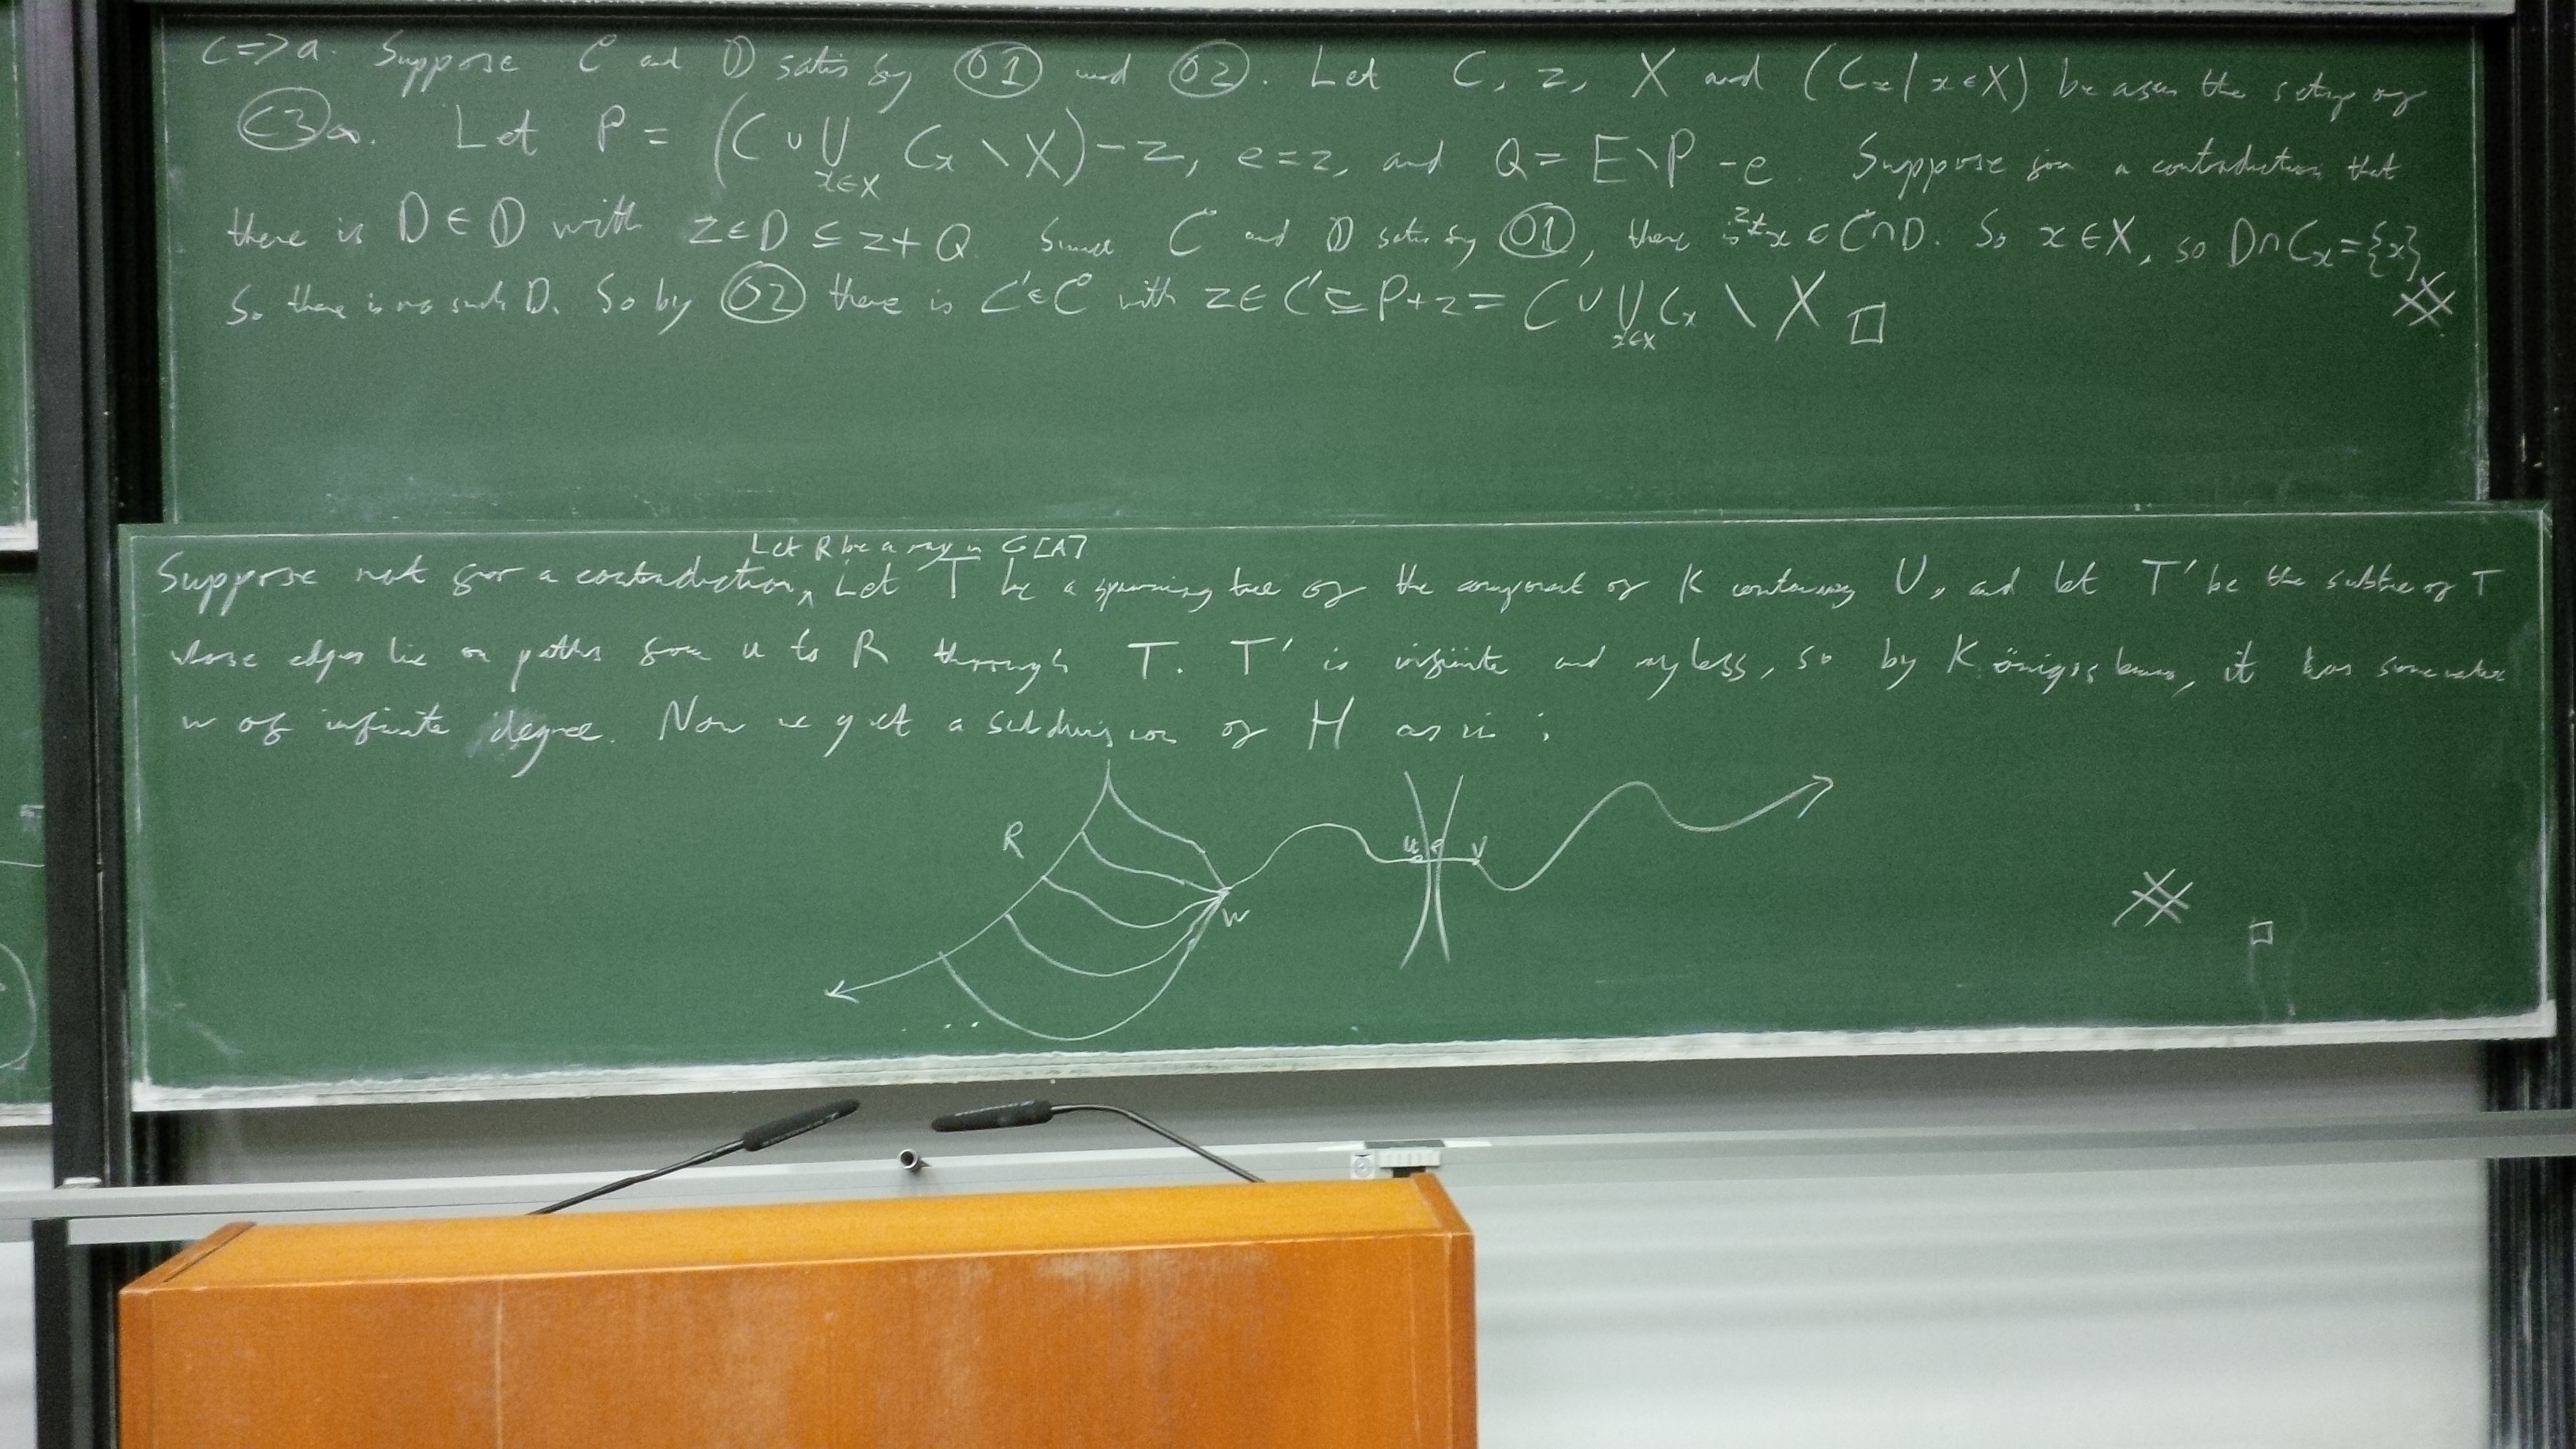 c => a. Suppose C and D satisfy O1 and O2. Let C, z, X and (Cₓ | x ∈ X) be as in the setup of
C3∞. Let P = (C ∪ ⋃_{x∈X} Cₓ \ X) - z, e = z, and Q = E \ P - e. Suppose for a contradiction that
there is D ∈ D with z ∈ D ⊆ z + Q. Since C and D satisfy O1, there is z ≠ x ∈ C ∩ D. So x ∈ X, so D ∩ Cₓ = {x}
So there is no such D. So by O2 there is C' ∈ C with z ∈ C' ⊆ P + z = C ∪ ⋃_{x∈X} Cₓ \ X □
Let R be a ray in G[A]
Suppose not for a contradiction, Let T be a spanning tree of the component of K containing U, and let T' be the subtree of T
whose edges lie on paths from u to R through T. T' is infinite and rayless, so by Königs lemma, it has some vertex
w of infinite degree. Now we get a subdivision of H as in :
R
u e v
w